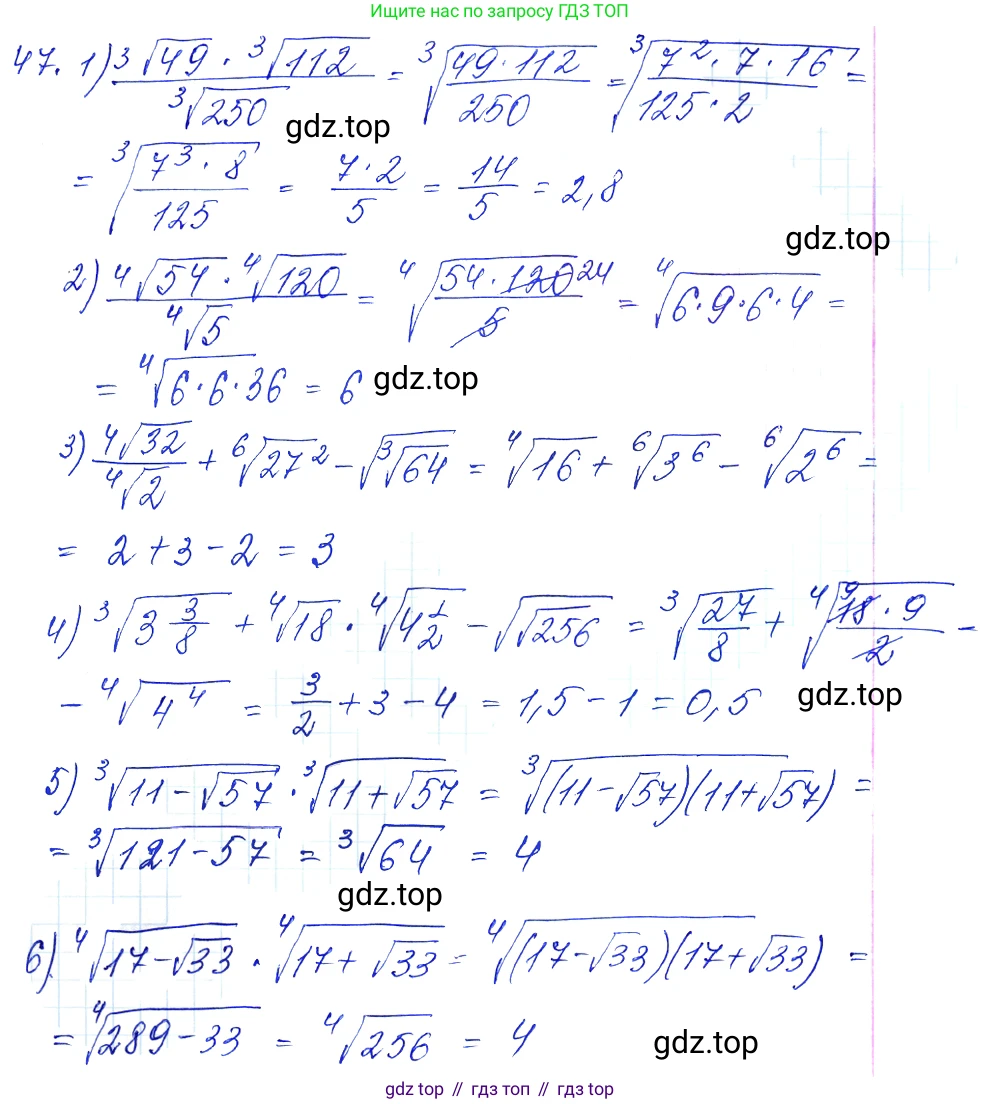 Ищите нас по запросу ГДЗ ТОП
47. 1) ∛49 · ∛112 / ∛250 = ∛(49·112 / 250) = ∛(7²·7·16 / 125·2) =
gdz.top
= ∛(7³·8 / 125) = 7·2 / 5 = 14/5 = 2,8
gdz.top
2) ∜54 · ∜120 / ∜5 = ∜(54·120 24 / 5) = ∜(6·9·6·4) =
= ∜(6·6·36) = 6 gdz.top
3) ∜32 / ∜2 + ⁶√27² - √∛64 = ∜16 + ⁶√3⁶ - ⁶√2⁶ =
= 2 + 3 - 2 = 3
4) ∛(3 3/8) + ∜18 · ∜(4 1/2) - √√256 = ∛(27/8) + ∜(9 18·9 / 2) -
- ∜4⁴ = 3/2 + 3 - 4 = 1,5 - 1 = 0,5 gdz.top
5) ∛(11-√57) · ∛(11+√57) = ∛((11-√57)(11+√57)) =
= ∛(121-57) = ∛64 = 4
gdz.top
6) ∜(17-√33) · ∜(17+√33) = ∜((17-√33)(17+√33)) =
= ∜(289-33) = ∜256 = 4 gdz.top
gdz.top // гдз топ // гdz.top